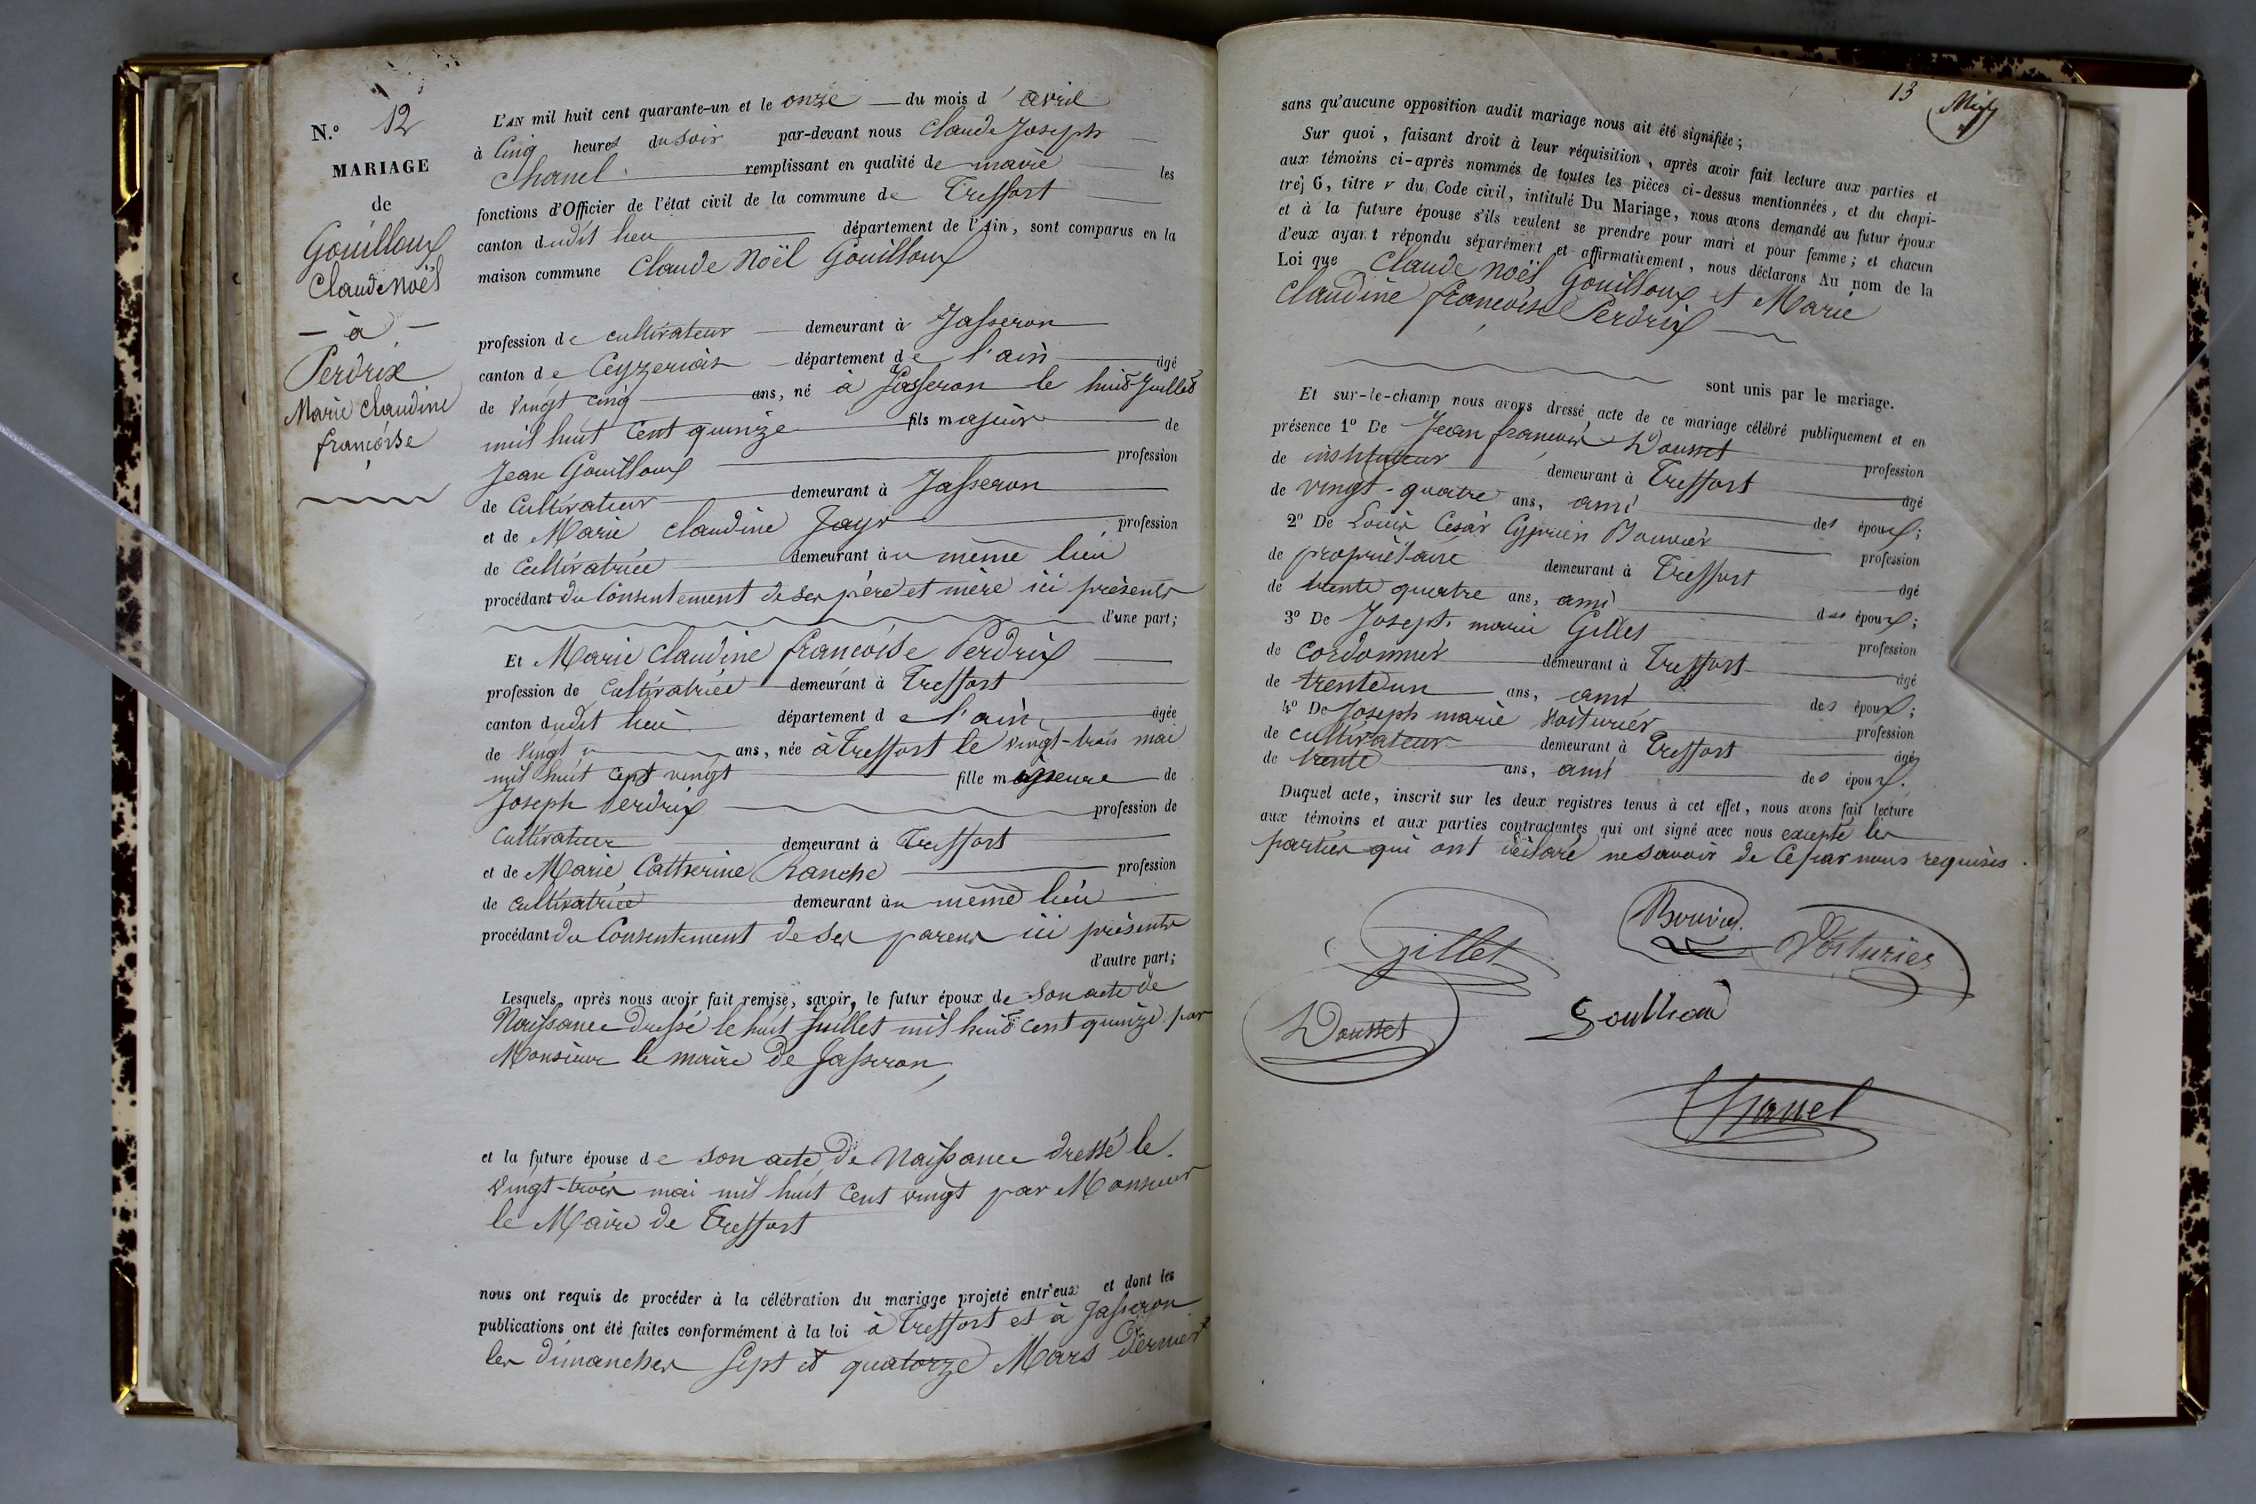 N.º 12
MARIAGE
de
Gouilloux
Claude Noël
— à —
Perdrix
Marie Claudine
françoise
L'AN mil huit cent quarante-un et le onze du mois d'avril
à Cinq heures du soir par-devant nous Claude Joseph
Chanel remplissant en qualité de maire les
fonctions d'Officier de l'état civil de la commune de Treffort
canton dudit lieu département de l'Ain, sont comparus en la
maison commune Claude Noël Gouilloux
profession de cultivateur demeurant à Jasseron
canton de Ceyzeriat département de l'ain âgé
de Vingt cinq ans, né à Jasseron le huit Juillet
mil huit Cent quinze fils majeur de
Jean Gouilloux profession
de Cultivateur demeurant à Jasseron
et de Marie Claudine Jayr profession
de Cultivatrice demeurant au même lieu
procédant du Consentement de ses père et mère ici présents
d'une part;
Et Marie Claudine françoise Perdrix
profession de Cultivatrice demeurant à Treffort
canton dudit lieu département de l'ain âgée
de Vingt ans, née à Treffort le vingt-trois mai
mil huit cent vingt fille mineure de
Joseph Perdrix profession de
Cultivateur demeurant à Treffort
et de Marie Catherine Ranche profession
de Cultivatrice demeurant au même lieu
procédant du Consentement de ses parens ici présents
d'autre part;
Lesquels, après nous avoir fait remise, savoir, le futur époux de Son acte de
Naissance dressé le huit Juillet mil huit cent quinze par
Monsieur le maire de Jasseron,
et la future épouse de son acte de Naissance dressé le
vingt-trois mai mil huit Cent vingt par Monsieur
le Maire de Treffort
nous ont requis de procéder à la célébration du mariage projeté entr'eux et dont les
publications ont été faites conformément à la loi à Treffort et à Jasseron
les dimanches Sept et quatorze Mars dernier
13
sans qu'aucune opposition audit mariage nous ait été signifiée;
Sur quoi, faisant droit à leur réquisition, après avoir fait lecture aux parties et
aux témoins ci-après nommés de toutes les pièces ci-dessus mentionnées, et du chapi-
tre 6, titre v du Code civil, intitulé Du Mariage, nous avons demandé au futur époux
et à la future épouse s'ils veulent se prendre pour mari et pour femme; et chacun
d'eux ayant répondu séparément et affirmativement, nous déclarons Au nom de la
Loi que Claude Noël Gouilloux et Marie
Claudine françoise Perdrix
sont unis par le mariage.
Et sur-le-champ nous avons dressé acte de ce mariage célébré publiquement et en
présence 1º De Jean françois Dousset profession
de instituteur demeurant à Treffort âgé
de vingt-quatre ans, ami des époux;
2º De Louis César Cyprien Bouvier profession
de propriétaire demeurant à Treffort âgé
de trente quatre ans, ami des époux;
3º De Joseph marie Gillet profession
de cordonnier demeurant à Treffort âgé
de trente un ans, ami des époux;
4º De Joseph marie Voiturier profession
de cultivateur demeurant à Treffort âgé
de trente ans, ami des époux.
Duquel acte, inscrit sur les deux registres tenus à cet effet, nous avons fait lecture
aux témoins et aux parties contractantes qui ont signé avec nous excepté les
parties qui ont déclaré ne savoir de ce par nous requises.
Bouvier
Gillet
Voiturier
Dousset
Chanel